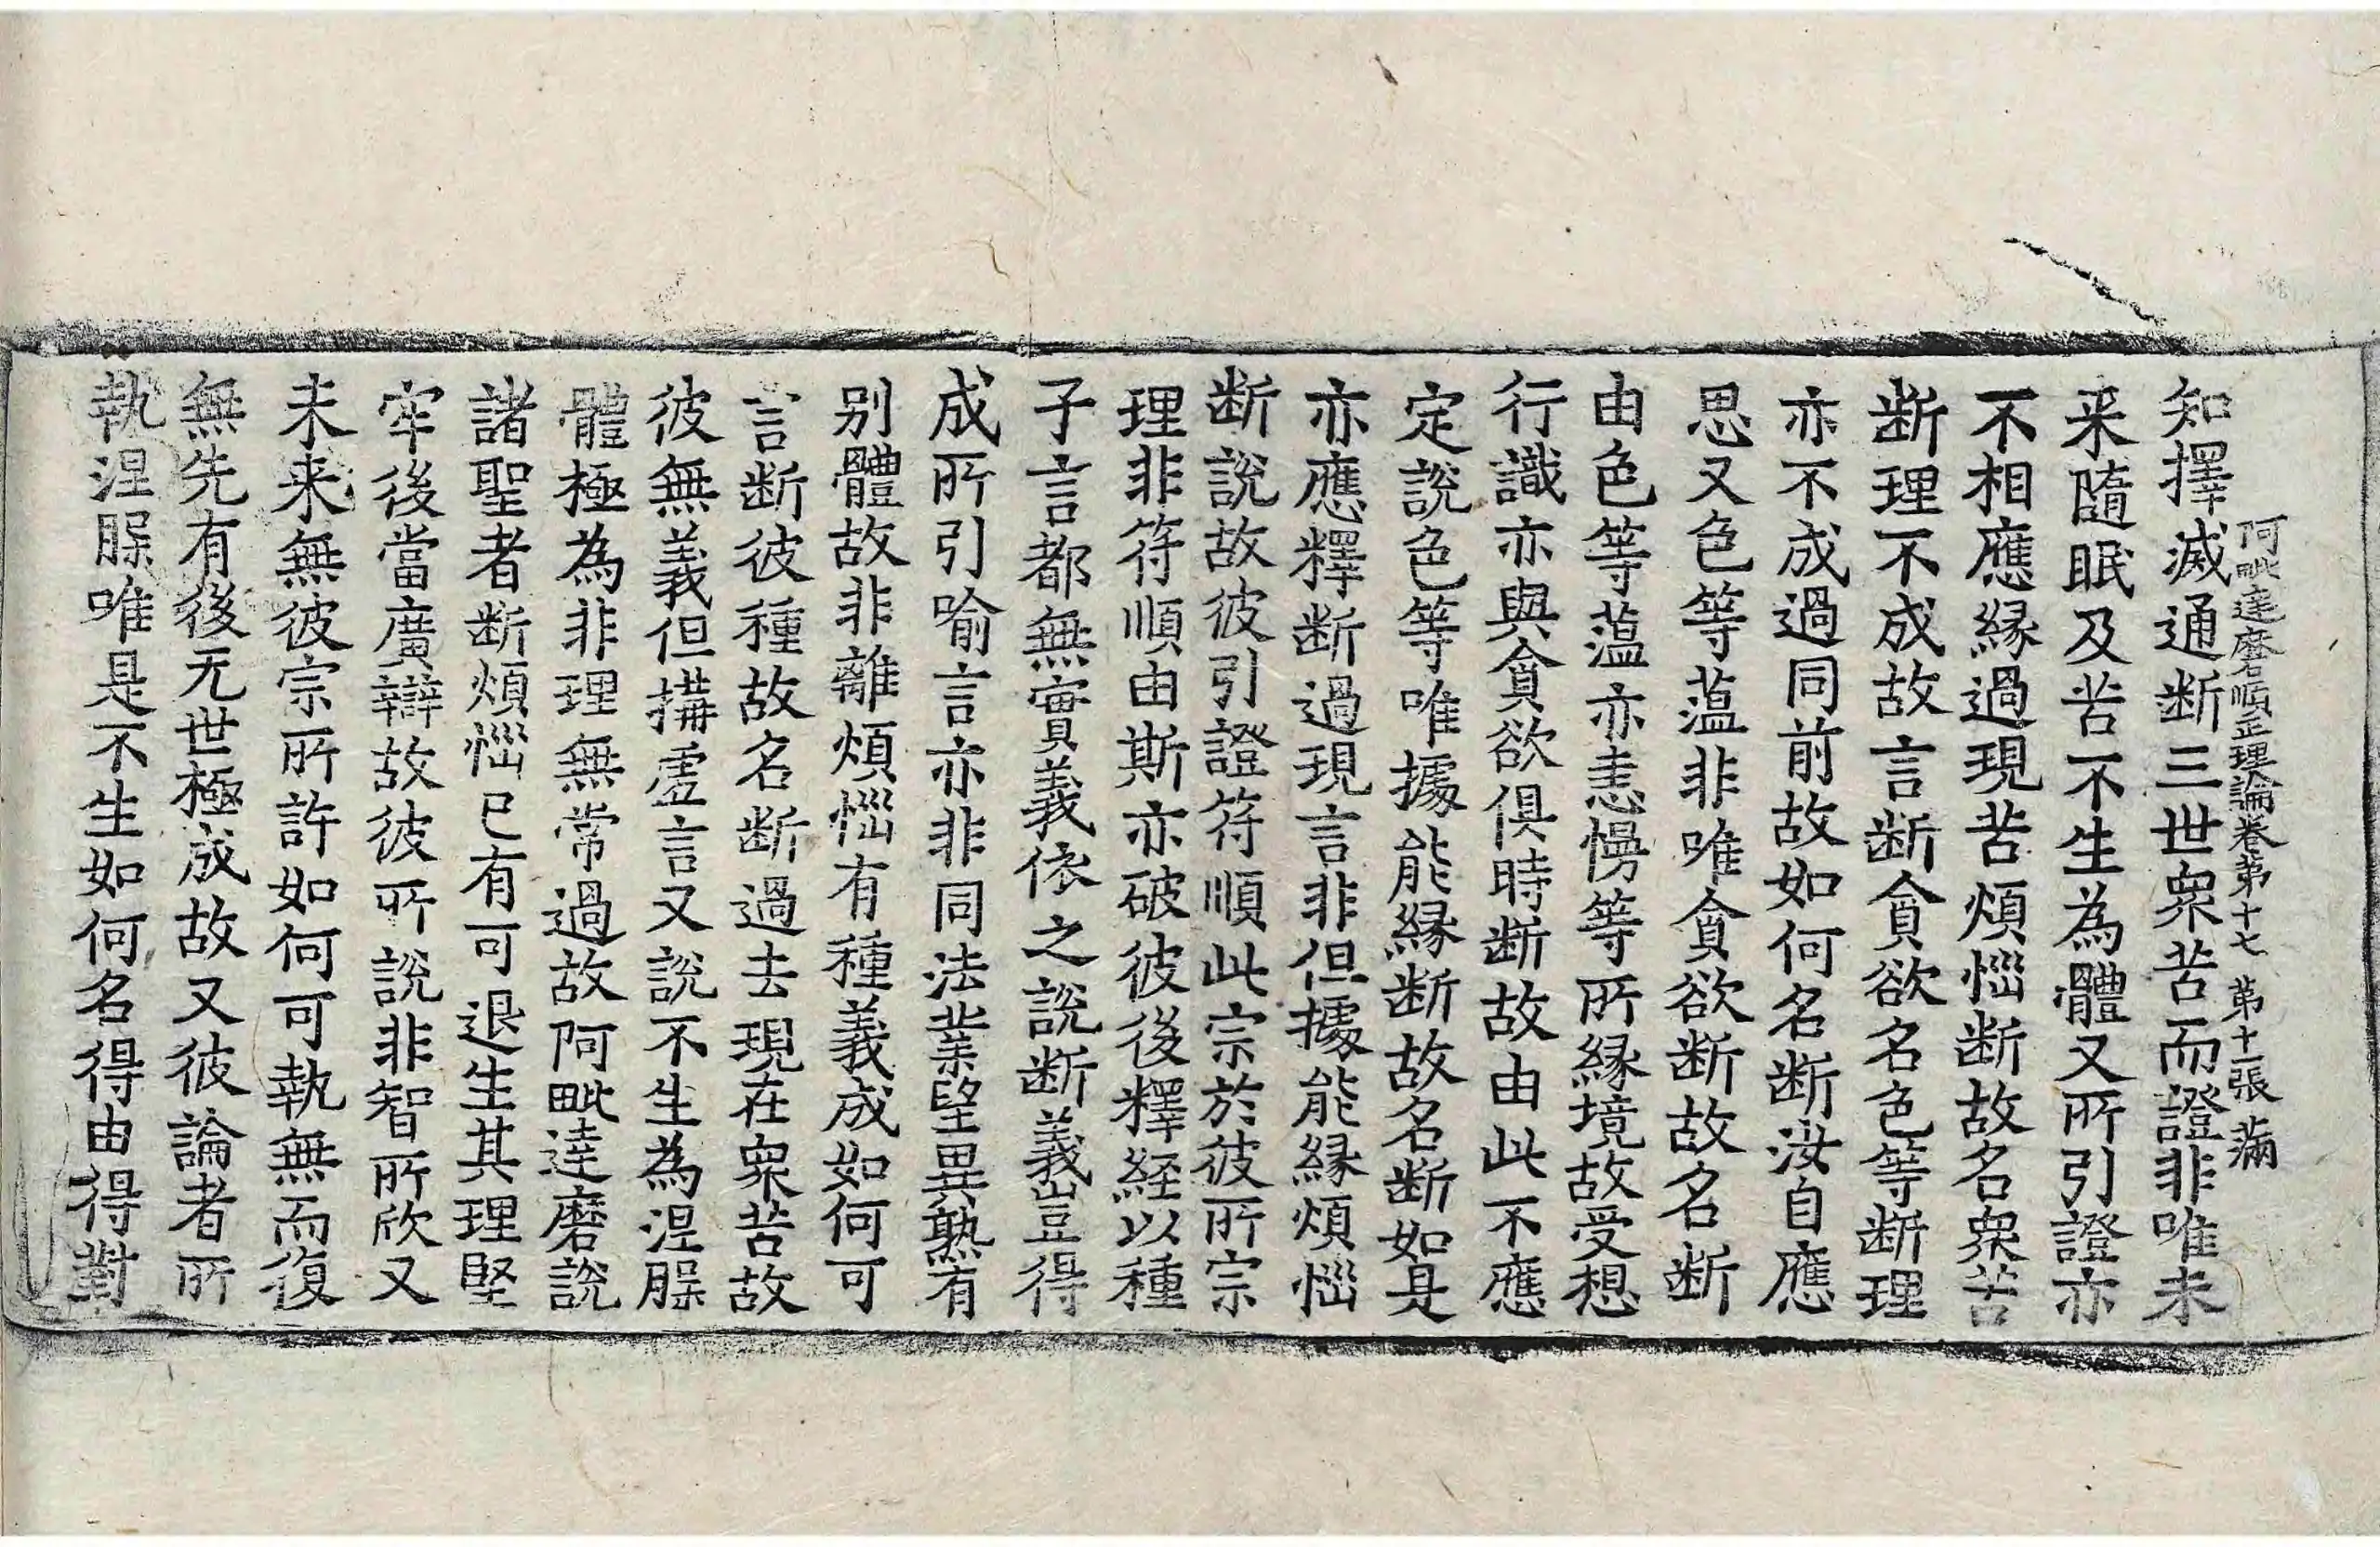 阿毗達磨順正理論卷第十七 第十一張 滿
知擇滅通断三世衆苦而證非唯未
来隨眠及苦不生為體又所引證亦
不相應縁過現苦煩惱断故名衆苦
断理不成故言断貪欲名色等断理
亦不成過同前故如何名断汝自應
思又色等蕰非唯貪欲断故名断
由色等蕰亦恚慢等所縁境故受想
行識亦與貪欲俱時断故由此不應
定說色等唯據能縁断故名断如是
亦應釋断過現言非但據能縁煩惱
断說故彼引證符順此宗於彼所宗
理非符順由斯亦破彼後釋経以種
子言都無實義依之說断義豈得
成所引喻言亦非同法業望異熟有
别體故非離煩惱有種義成如何可
言断彼種故名断過去現在衆苦故
彼無義但搆虚言又說不生為涅槃
體極為非理無常過故阿毗達磨說
諸聖者断煩惱已有可退生其理堅
牢後當廣辯故彼所說非智所欣又
未来無彼宗所許如何可執無而復
無先有後无世極成故又彼論者所
執涅槃唯是不生如何名得由得對